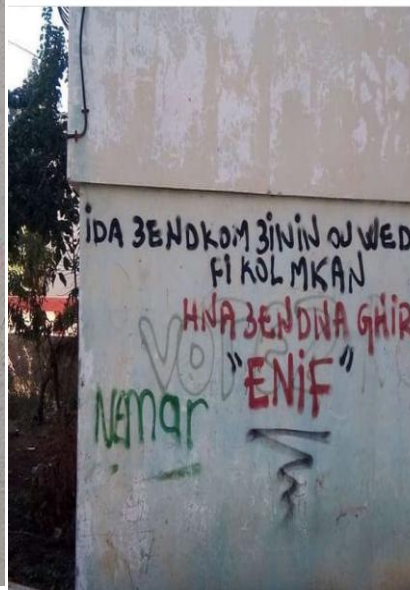 iDA 3ENDKOM 3iNiN OU WED
Fi KOL MKAN
HNA 3ENDNA GHiR
"ENiF"
VOTE
NEmar